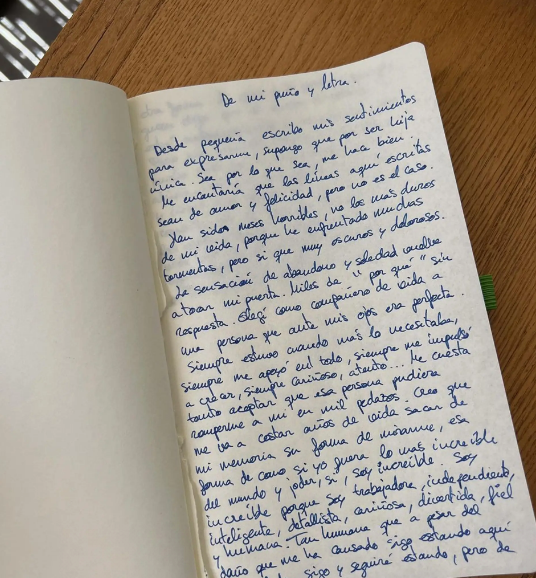 De mi puño y letra.
Desde pequeña escribo mis sentimientos
para expresarme, supongo que por ser hija
única. Sea por lo que sea, me hace bien.
Me encantaría que las líneas aquí escritas
sean de amor y felicidad, pero no es el caso.
Han sido meses horribles, no los más duros
de mi vida, porque he enfrentado muchas
tormentas, pero si que muy oscuros y dolorosos.
La sensación de abandono y soledad vuelve
a tocar mi puerta. Miles de "por qué" sin
respuesta. Elegí como compañero de vida a
una persona que ante mis ojos era perfecta.
Siempre estuvo cuando más lo necesitaba,
siempre me apoyó en todo, siempre me impulsó
a crear, siempre cariñoso, atento... Me cuesta
tanto aceptar que esa persona pudiera
romperme a mi en mil pedazos. Creo que
me va a costar años de vida sacar de
mi memoria su forma de mirarme, esa
forma de como si yo fuera lo más increíble
del mundo y joder, si, soy increíble. Soy
increíble porque soy trabajadora, independiente,
inteligente, detallista, cariñosa, divertida, fiel
y humana. Tan humana que a pesar del
daño que me ha causado sigo estando aquí
sigo y seguiré estando, pero de